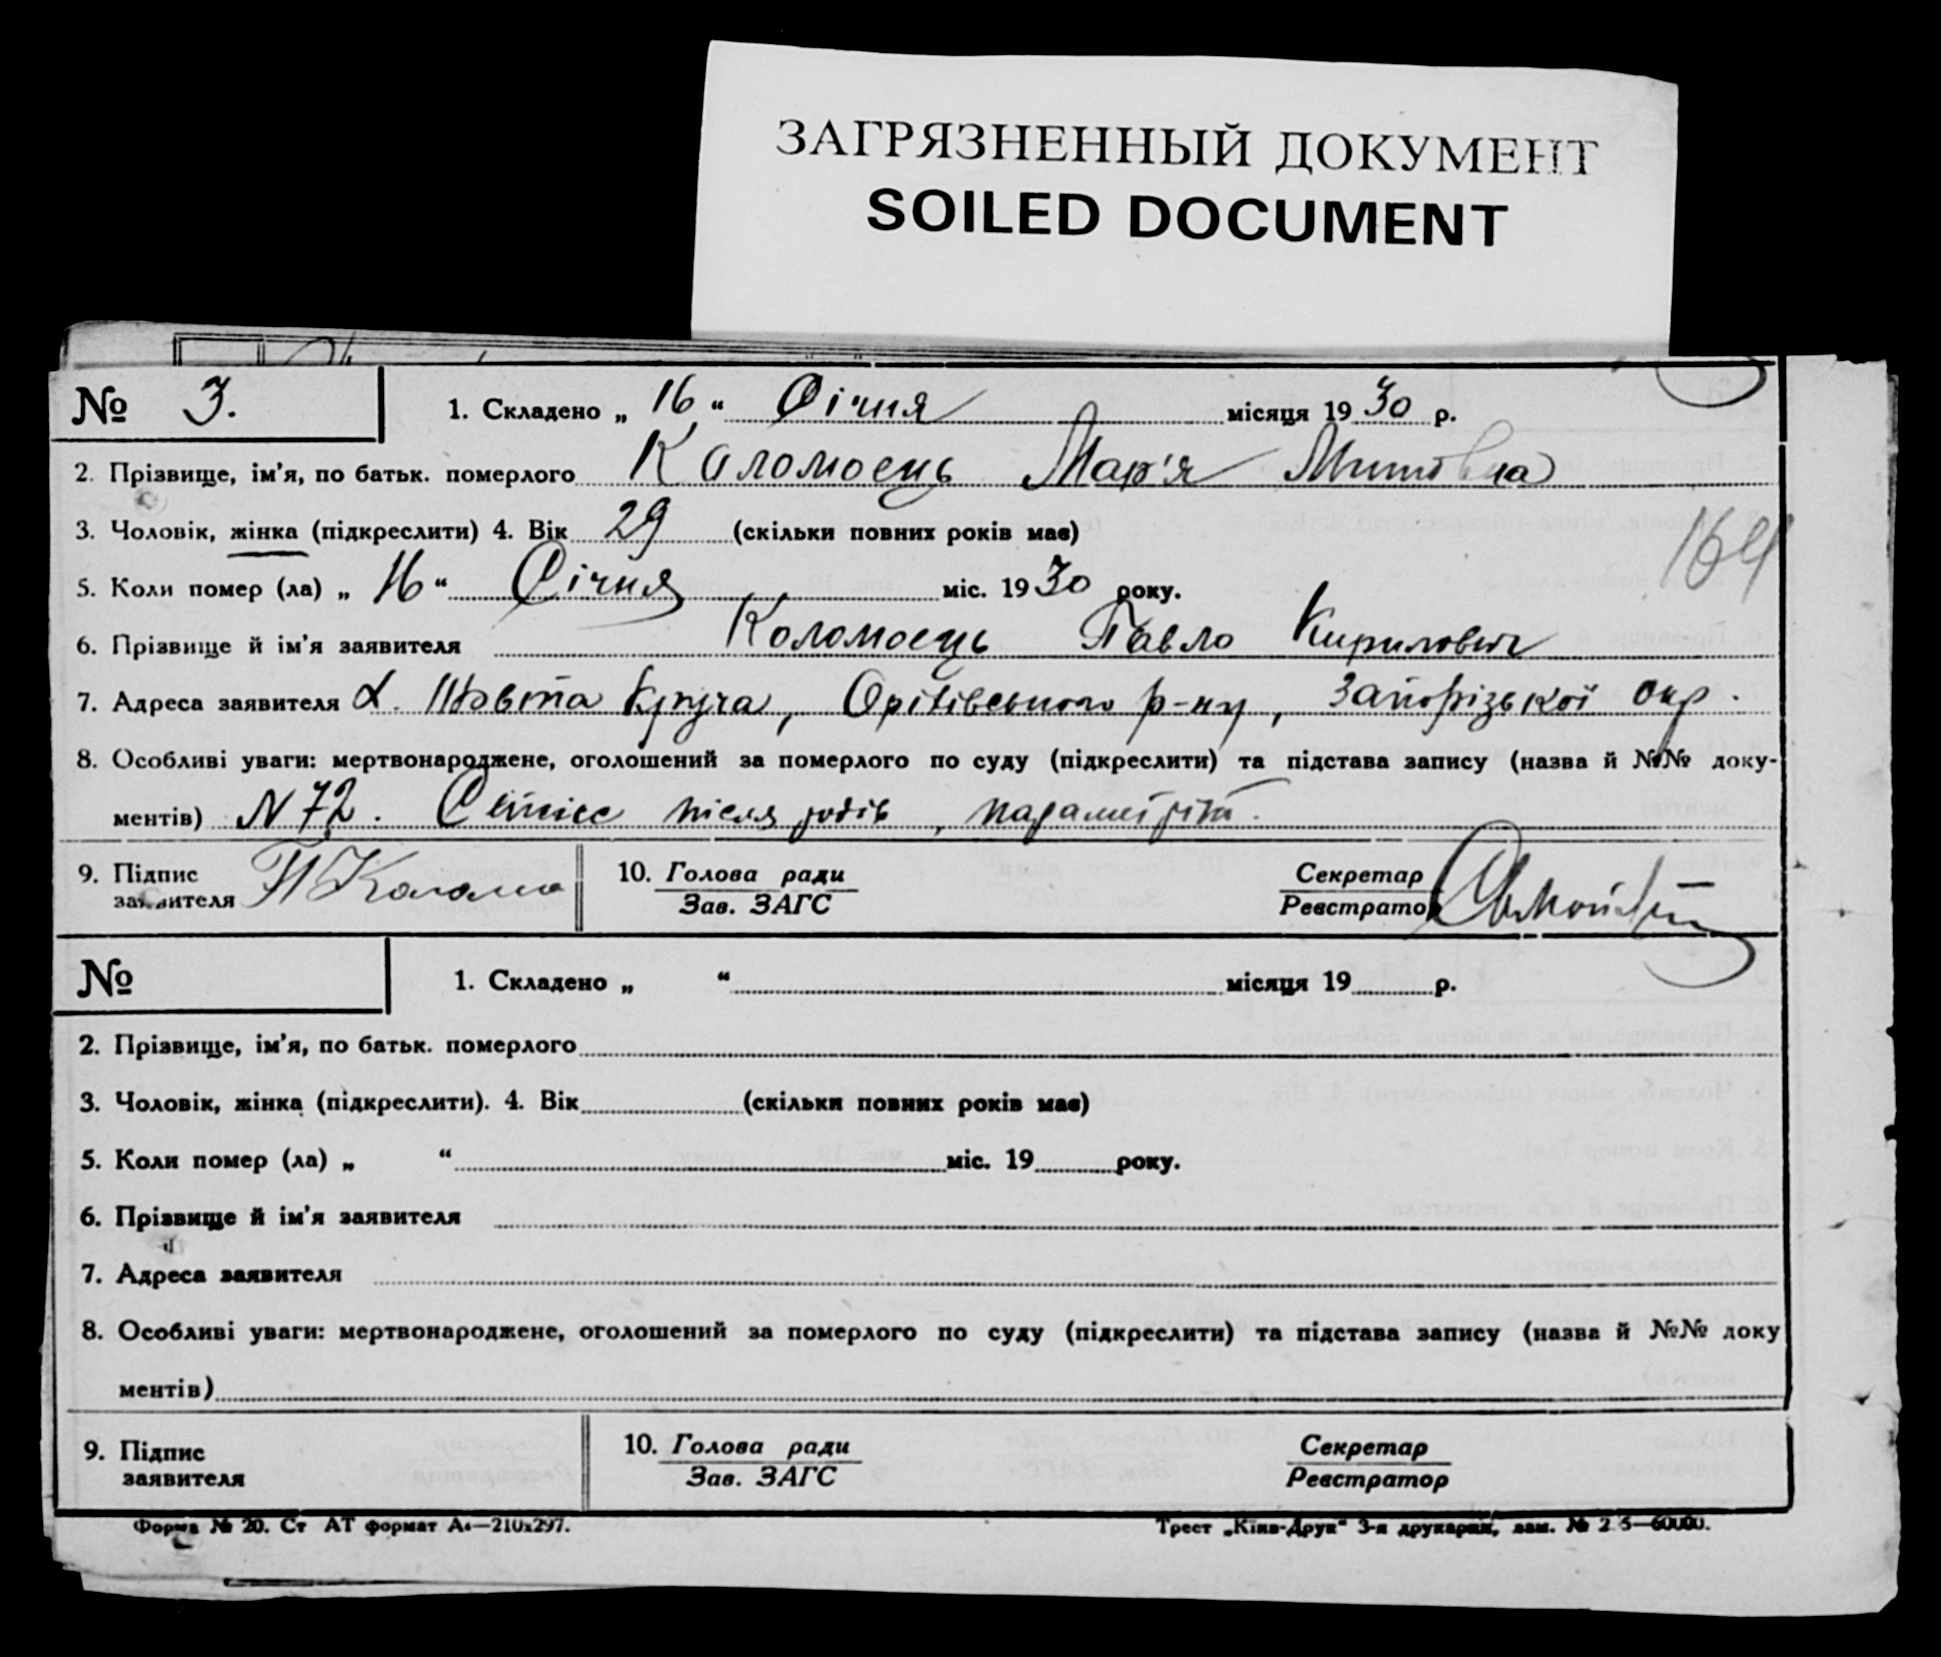 ЗАГРЯЗНЕННЫЙ ДОКУМЕНТ
SOILED DOCUMENT
№ 3. 1. Складено „ 16 “ Січня місяця 1930 р.
2. Прізвище, ім’я, по батьк. померлого Коломоєць Мар'я
3. Чоловік, жінка (підкреслити) 4. Вік 29 (скільки повних років має)
164
5. Коли помер (ла) „ 16 “ Січня міс. 1930 року.
6. Прізвище й ім’я заявителя Коломоєць Павло Кирилович
7. Адреса заявителя Круча, р-ну, Запорізької окр.
8. Особливі уваги: мертвонароджене, оголошений за померлого по суду (підкреслити) та підстава запису (назва й №№ доку-
ментів) N 72. після родів, параметріт.
9. Підпис заявителя 10. Голова ради Секретар
Зав. ЗАГС Реєстратор
№ 1. Складено „ “ місяця 19 р.
2. Прізвище, ім’я, по батьк. померлого
3. Чоловік, жінка (підкреслити). 4. Вік (скільки повних років має)
5. Коли помер (ла) „ “ міс. 19 року.
6. Прізвище й ім’я заявителя
7. Адреса заявителя
8. Особливі уваги: мертвонароджене, оголошений за померлого по суду (підкреслити) та підстава запису (назва й №№ доку
ментів)
9. Підпис заявителя 10. Голова ради Секретар
Зав. ЗАГС Реєстратор
Форма № 20. Ст АТ формат А4—210х297. Трест „Київ-Друк“ 3-я друкарня, зам. №